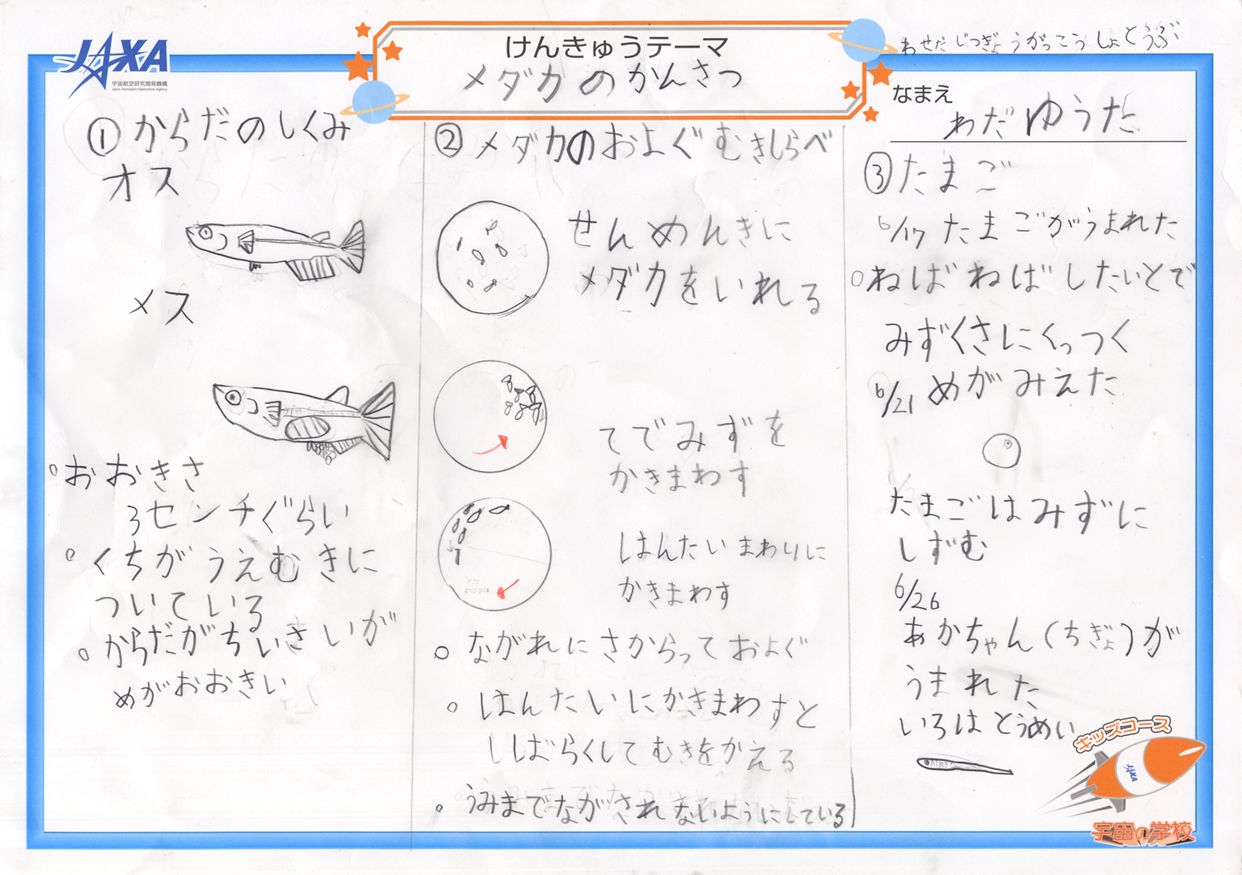 JAXA
宇宙航空研究開発機構
Japan Aerospace Exploration Agency
けんきゅうテーマ
メダカのかんさつ
わせだ じつぎょ うがっこう しょとうぶ
なまえ
わだゆうた
①からだのしくみ
オス
メス
おおきさ
3センチぐらい
くちがうえむきに
ついている
からだがちいさいが
めがおおきい
②メダカのおよぐむきしらべ
せんめんきに
メダカをいれる
てでみずを
かきまわす
はんたいまわりに
かきまわす
ながれにさからっておよぐ
はんたいにかきまわすと
ししばらくしてむきをかえる
うみまでながされないようにしている
③たまご
6/17 たまごがうまれた
ねばねばしたいとで
みずくさにくっつく
6/21 めがみえた
たまごはみずに
しずむ
6/26
あかちゃん(ちぎょ)が
うまれた
いろはとうめい
キッズコース
JAXA
宇宙の学校